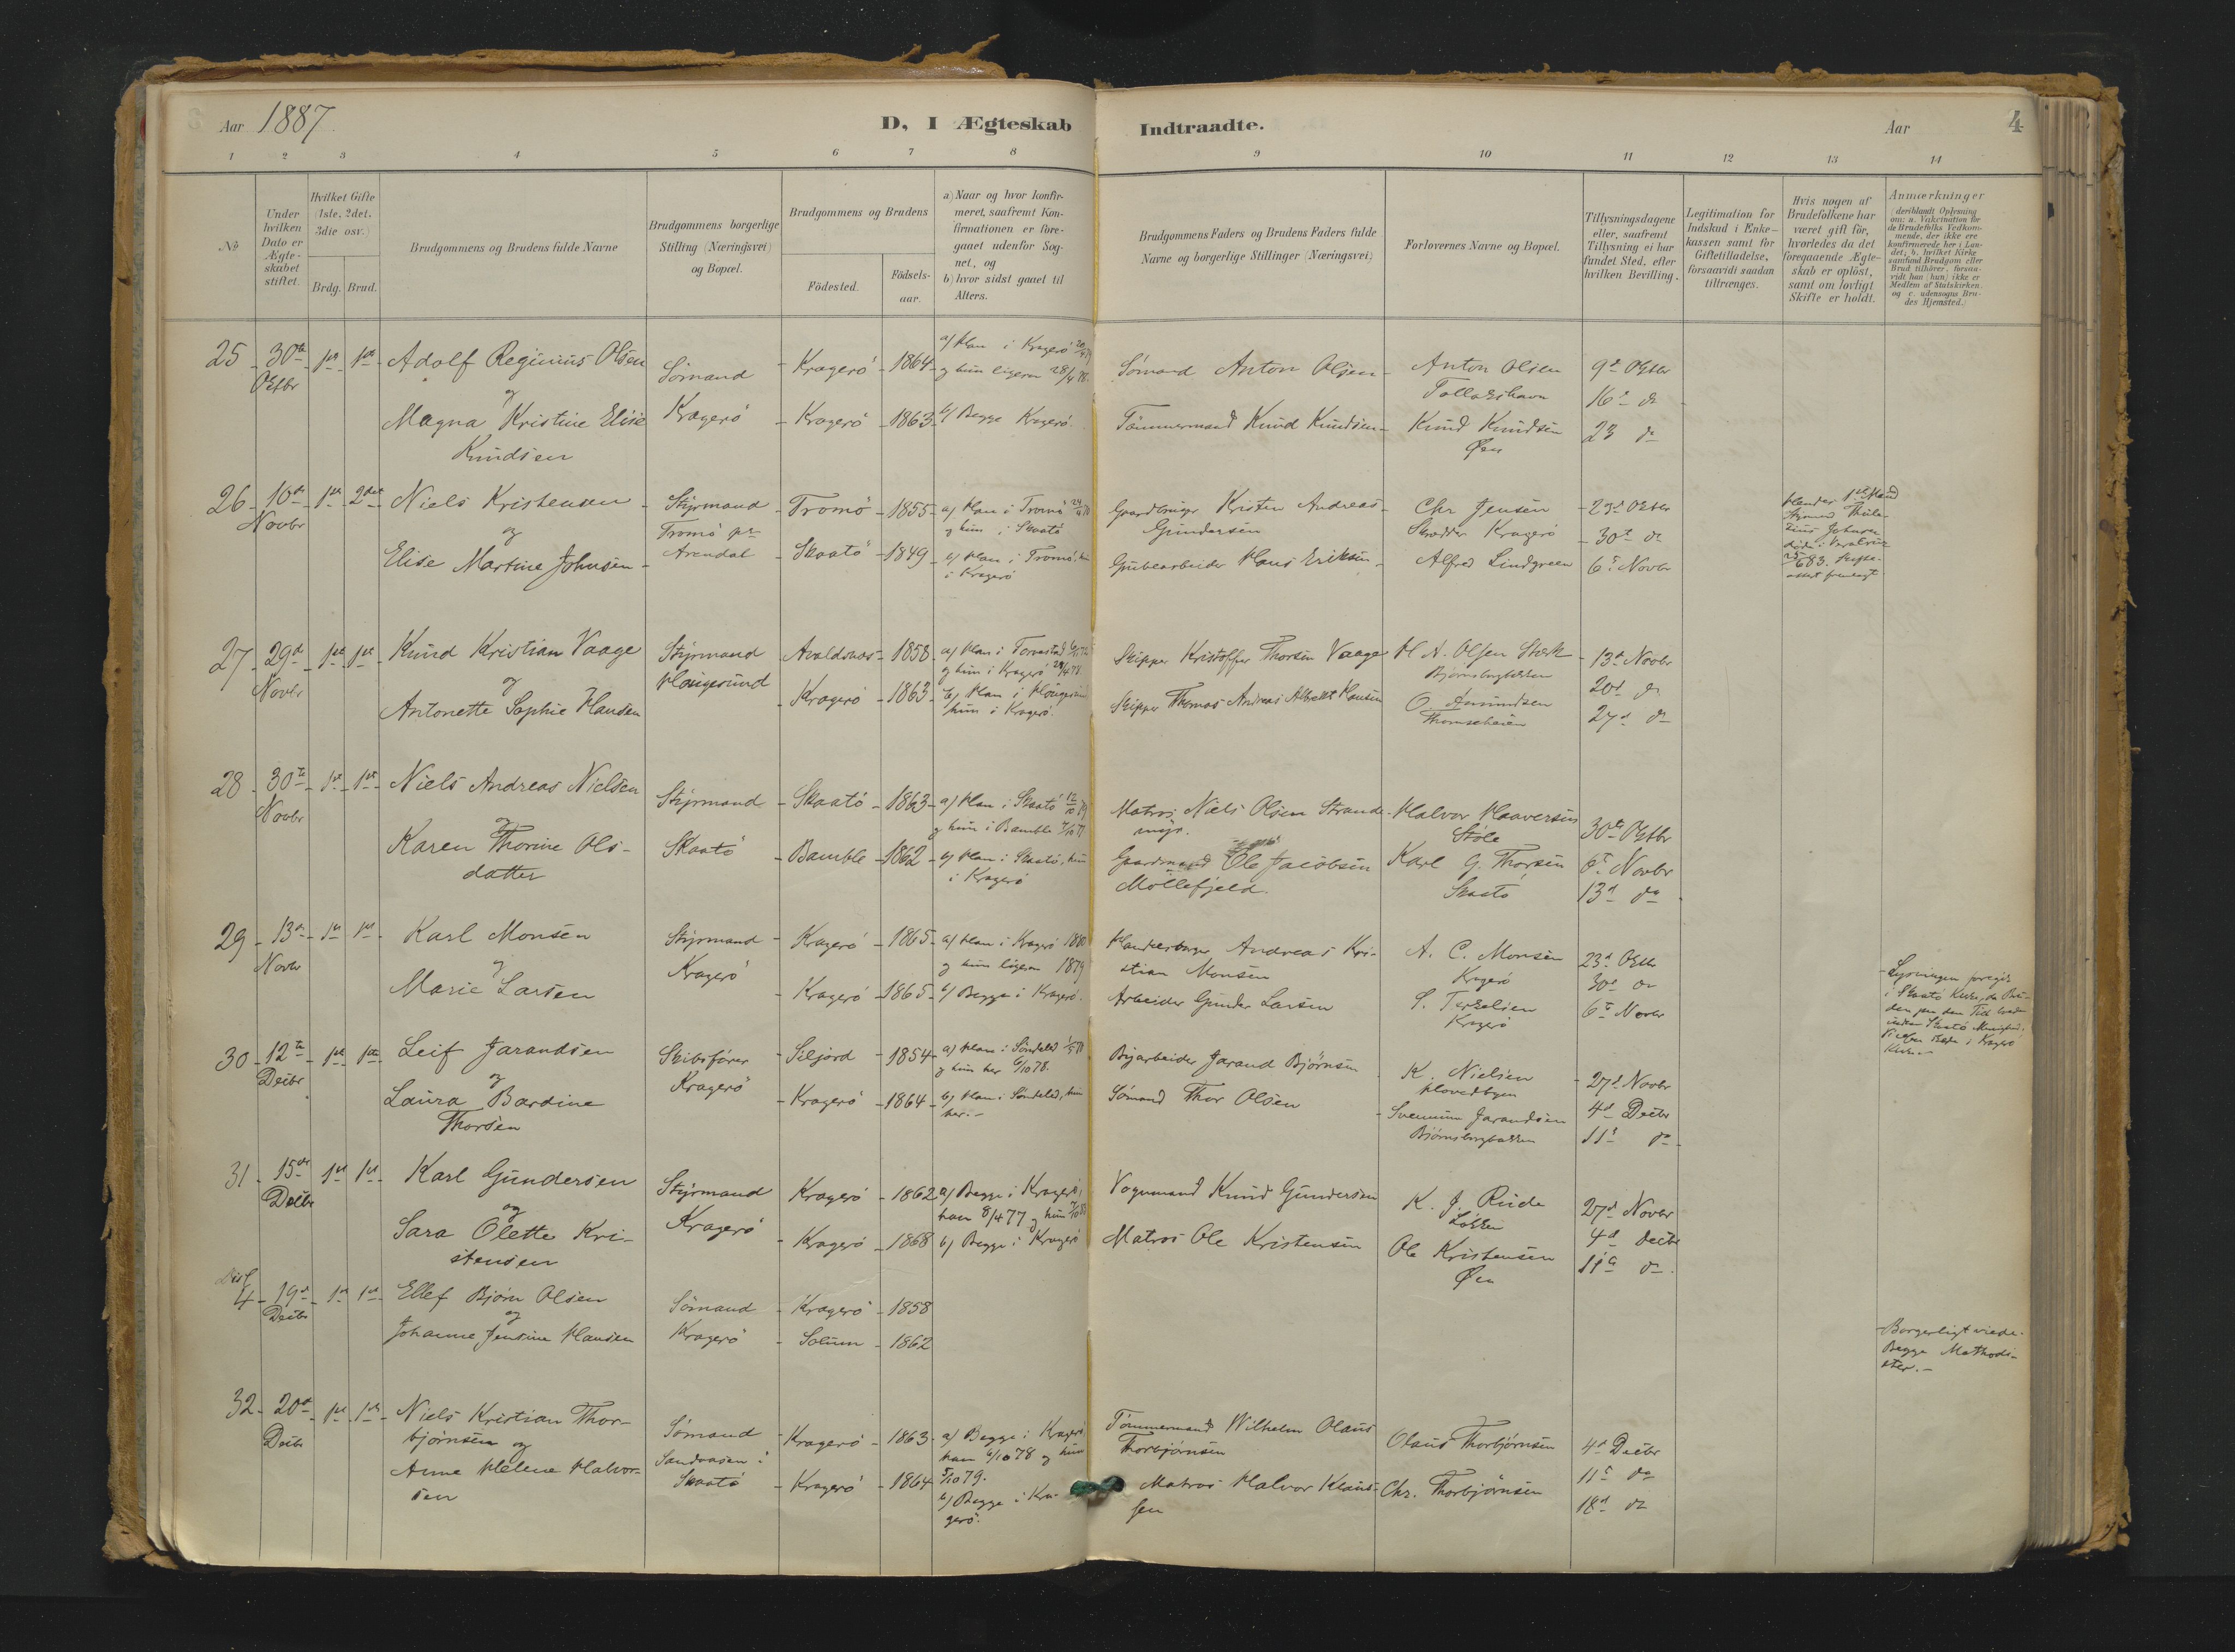 Aar 1887
D, I Ægteskab Indtraadte.
Aar
4
1 2 3 4 5 6 7 8 9 10 11 12 13 14
No
Under hvilken Dato er Ægte-skabet stiftet.
Hvilket Gifte (1ste, 2det, 3die osv.)
Brdg. Brud.
Brudgommens og Brudens fulde Navne
Brudgommens borgerlige Stilling (Næringsvei) og Bopæl.
Brudgommens og Brudens
Födested.
Födsels-aar.
a) Naar og hvor konfir-meret, saafremt Kon-firmationen er fore-gaaet udenfor Sog-net, og
b) hvor sidst gaaet til Alters.
Brudgommens Faders og Brudens Faders fulde Navne og borgerlige Stillinger (Næringsvei)
Forlovernes Navne og Bopæl.
Tillysningsdagene eller, saafremt Tillysning ei har fundet Sted, efter hvilken Bevilling.
Legitimation for Indskud i Enke-kassen samt for Giftetilladelse, forsaavidt saadan tiltrænges.
Hvis nogen af Brudefolkene har været gift för, hvorledes da det foregaaende Ægte-skab er oplöst, samt om lovligt Skifte er holdt.
Anmærkninger
(deriblandt Oplysning om: a. Vakcination for de Brudefolks Vedkom-mende, der ikke ere konfirmerede her i Lan-det; b. hvilket Kirke-samfund Brudgom eller Brud tilhörer, forsaa-vidt han (hun) ikke er Medlem af Statskirken, og c. udensogns Bru-des Hjemsted.)
25 30te Oktbr 1ste 1ste
Adolf Reginius Olsen
og
Magna Kristine Elise
Knudsen
Sömand
Kragerö
Kragerö 1864
Kragerö 1863
a) Han i Kragerö
og hun ligesaa 28/4 78.
b) Begge Kragerö.
Sömand Anton Olsen
Tömmermand Knud Knudsen
Anton Olsen
Knud Knudsen
Øen
9d Oktbr
16d do
23 do
26 10de Novbr 1ste 2det
Niels Kristensen
og
Elise Martine Johnsen
Styrmand
Tromö pr
Arendal
Tromö 1855
Skaatö 1849
a) Han i Tromö
og hun i Skaatö
b) Han i Tromö, hun
i Kragerö
Gaardbruger Kristen Andreas
Gundersen
Grubearbeider Hans Eriksen
Chr Jensen
Kragerö
Alfred Lindgreen
23d Oktbr
30te do
6te Novbr
27 29d Novbr 1ste 1ste
Knud Kristian Vaage
og
Antonette Sophie Hansen
Styrmand
Haugesund
Avaldsnæs 1858
Kragerö 1863
a) Han i Torvestad
og hun i Kragerö
b) Han i Haugesund
hun i Kragerö.
Skipper Kristoffer Thorsen Vaage
Skipper Thomas Andreas Albrekt Hansen
H A. Olsen
O. Amundsen
13d Novbr
20d do
27d do
28 30te Novbr 1ste 1ste
Niels Andreas Nielsen
og
Karen Thorine Ols-
datter
Styrmand
Skaatö
Skaatö 1863
Bamble 1862
a) Han i Skaatö
og hun i Bamble
b) Han i Skaatö, hun
i Kragerö
Matros Niels Olsen
Gaardmand Ole Jacobsen
Möllefjeld.
Halvor Haaversen
Støle
Karl G. Thorsen
Skaatö
30te Oktbr
6te Novbr
13d do
29 13de Novbr 1ste 1ste
Karl Monsen
og
Marie Larsen
Styrmand
Kragerö
Kragerö 1865
Kragerö 1865
a) Han i Kragerö 1880
og hun ligesaa 1879
b) Begge i Kragerö.
Andreas Kri-
stian Monsen
Arbeider Gunder Larsen
A. C. Monsen
Kragerö
S. Terkelsen
Kragerö
23d Oktbr
30d do
6te Novbr
Lysningen foregik
i Skaatö Kirke, da Bru-
den paa den Tid
30 12te Decbr 1ste 1ste
Leif Jarandsen
og
Laura Bardine
Thorsen
Skibsförer
Kragerö
Siljord 1854
Kragerö 1864
a) Han i Söndeled
og hun her 6/10 78.
b) Han i Söndeled, hun
her.
Byarbeider Jarand Björnsen
Sömand Thor Olsen
K. Nielsen
Jarandsen
Björnsborgbakken
27d Novbr
4d Decbr
11te do
31 15de Decbr 1ste 1ste
Karl Gundersen
og
Sara Olette Kri-
stensen
Styrmand
Kragerö
Kragerö 1862
Kragerö 1868
a) Begge i Kragerö,
han 8/4 77 og hun
b) Begge i Kragerö
Vognmand Knud Gundersen
Matros Ole Kristensen
K. J. Riide
Ole Kristensen
Øen
27d Novbr
4d Decbr
11te do
4 19d Decbr 1ste 1ste
Ellef Björn Olsen
og
Johanne Jensine Hansen
Sömand
Kragerö
Kragerö 1858
Solum 1862
Borgerligt viede.
Begge Methodi-
ster.
32 20d Decbr 1ste 1ste
Niels Kristian Thor-
björnsen og
Anne Helene Halvor-
sen
Sömand
Sandaasen i
Skaatö
Kragerö 1863
Kragerö 1864
a) Begge i Kragerö
han 6/10 78 og hun
5/10 79.
b) Begge i Kra-
gerö.
Tömmermand Wilhelm Olaus
Thorbjörnsen
Matros Halvor Klaus-
sen
Olaus Thorbjörnsen
Chr. Thorbjörnsen
4d Decbr
11te do
18d do